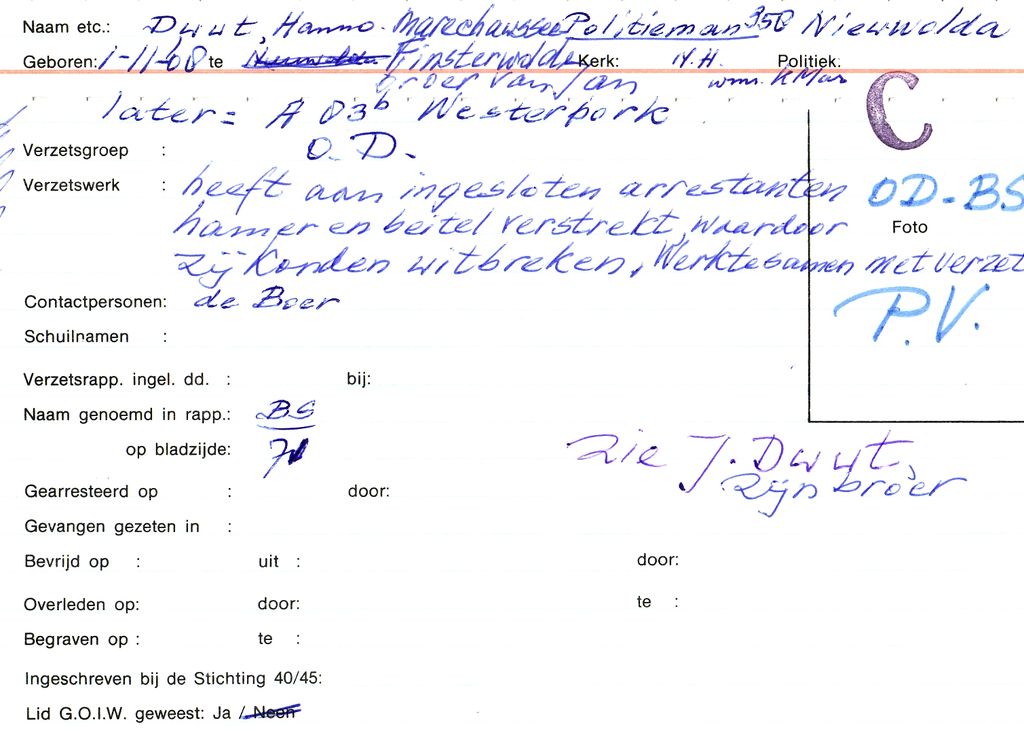 Naam etc.: Dwwt, Hanno. Marechaussee Politieman 35B Nieuwolda
Geboren: 1-11-08 te Nieuwolda Finsterwolde Kerk: N.H. Politiek:
broer van Jan wm. KMar
later = A 83b Westerbork
C
Verzetsgroep : O.D.
Verzetswerk : heeft aan ingesloten arrestanten
OD-BS
hamer en beitel verstrekt, waardoor
Foto
zij konden uitbreken. Werkte samen met verzet
Contactpersonen: de Boer
P.V.
Schuilnamen :
Verzetsrapp. ingel. dd. : bij:
Naam genoemd in rapp.: BS
op bladzijde: 71
Zie J. Dwwt,
zijn broer
Gearresteerd op : door:
Gevangen gezeten in :
Bevrijd op : uit : door:
Overleden op: door: te :
Begraven op : te :
Ingeschreven bij de Stichting 40/45:
Lid G.O.I.W. geweest: Ja / Neen